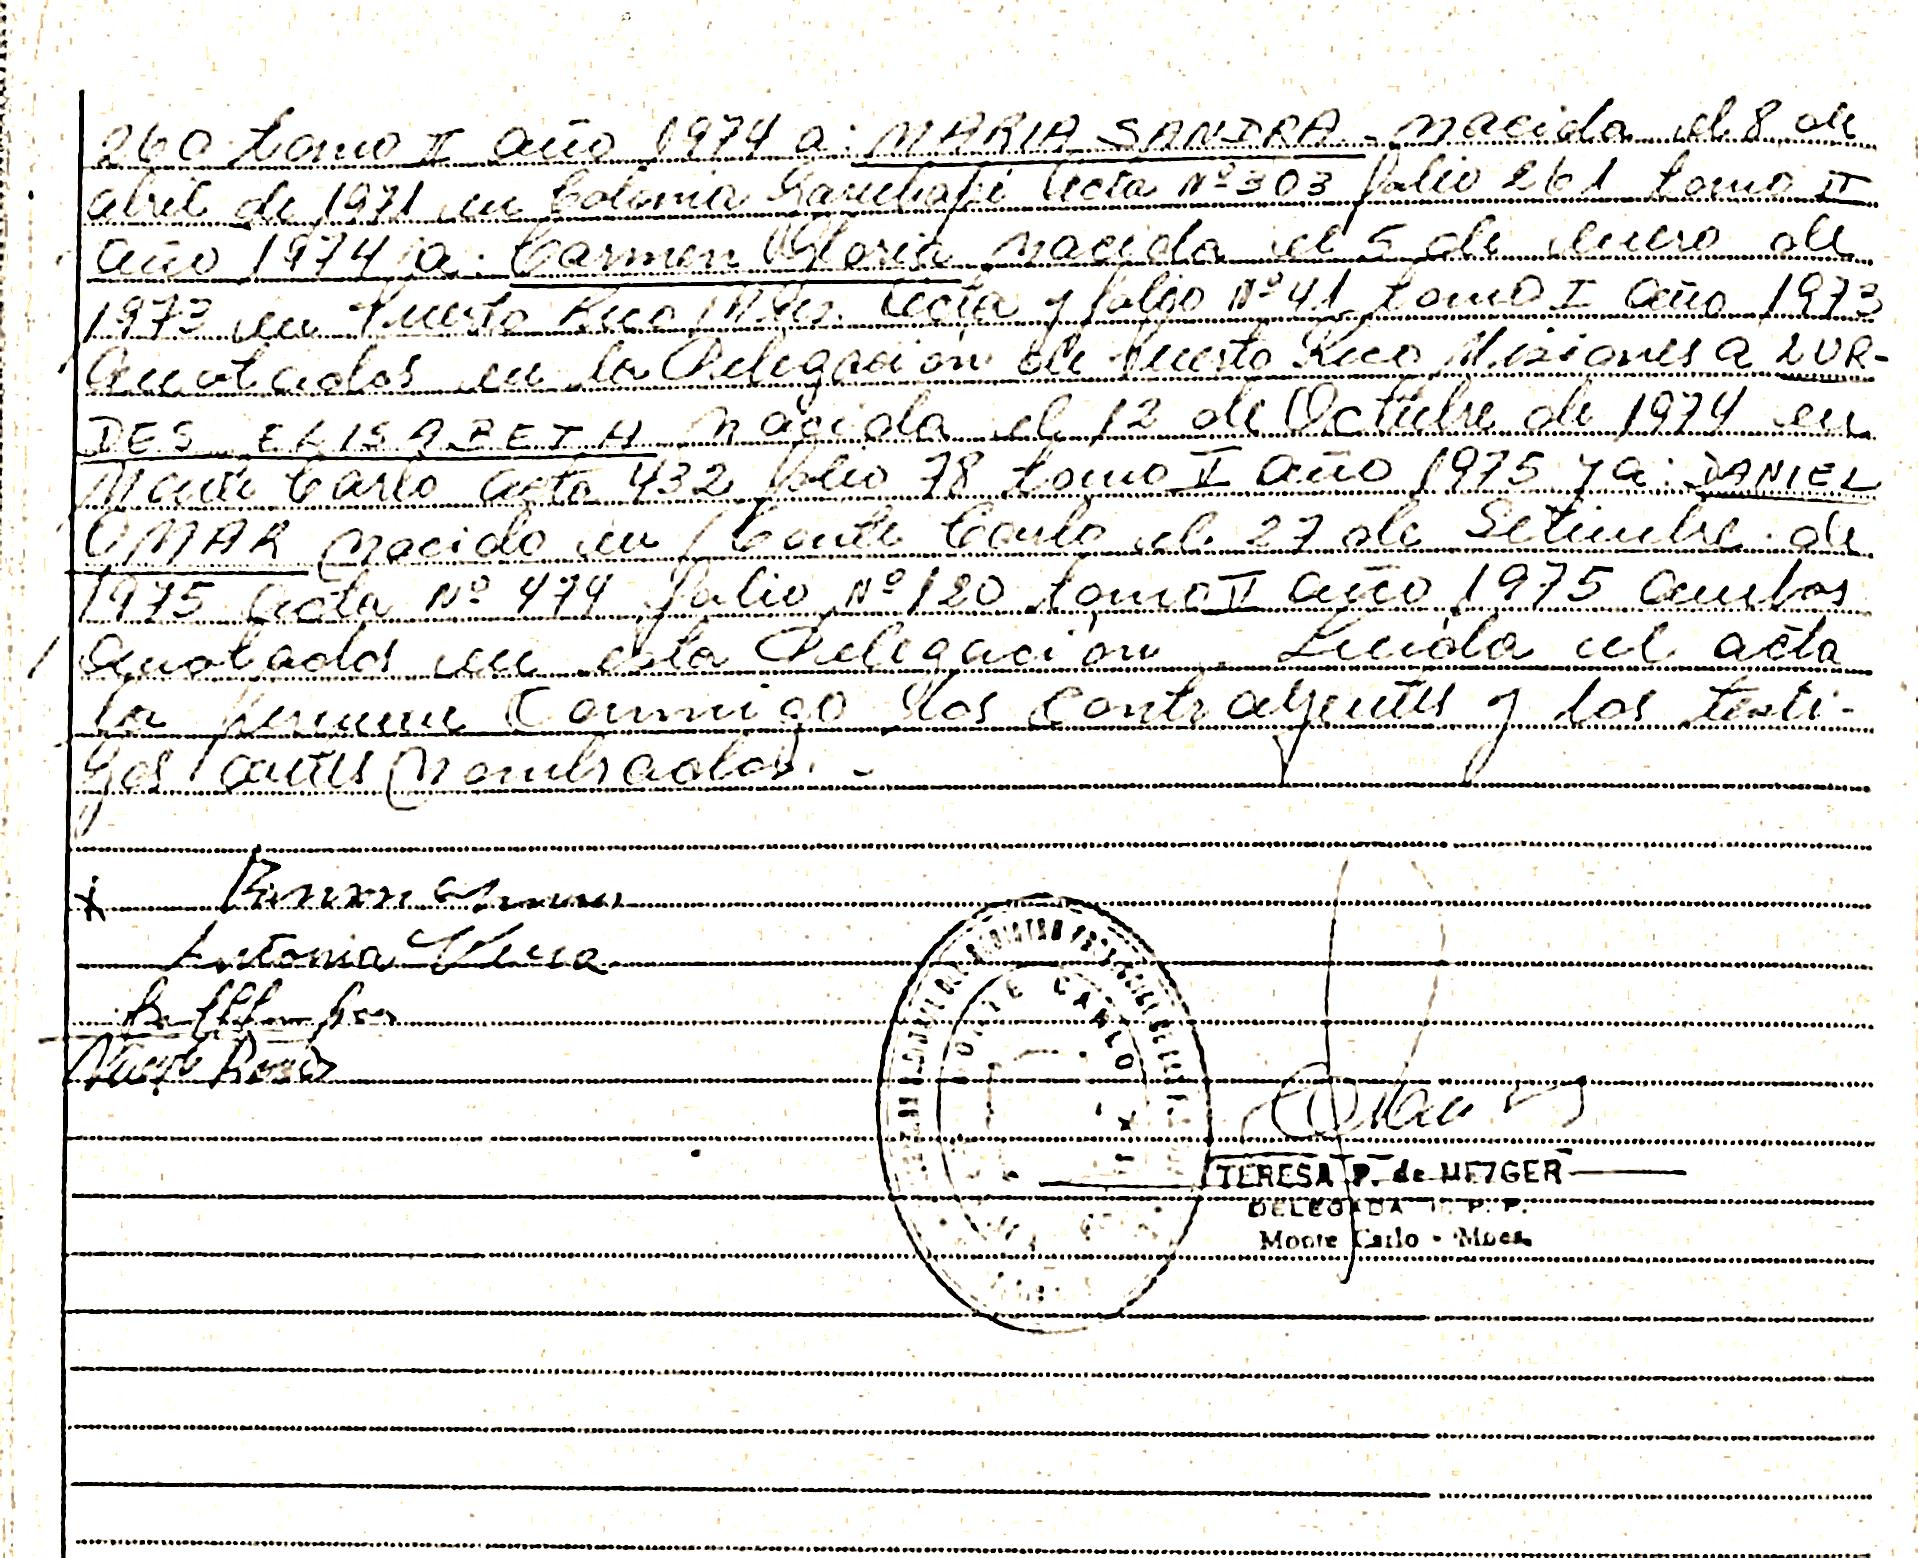 260 tomo II año 1974 a: MARIA SANDRA. nacida el 8 de
abril de 1971 en Colonia Garuhapé Acta Nº 303 folio 261 tomo II
año 1974 a: Carmen Gloria nacida el 5 de enero de
1973 en Puerto Rico Mnes. Acta y folio Nº 41 tomo I año 1973
anotados en la Delegación de Puerto Rico Misiones a LUR-
DES ELISABETH nacida el 12 de Octubre de 1974 en
Monte Carlo acta 432 folio 78 tomo I año 1975 y a: DANIEL
OMAR nacido en Monte Carlo el 27 de Setiembre de
1975 acta Nº 474 folio Nº 120 tomo II año 1975 ambos
anotados en esta Delegación. Leída el acta
la firman conmigo los contrayentes y los testi-
gos antes nombrados. -
x Ramon
Antonia
MONTE CARLO
TERESA P. de METZGER
DELEGADA R. P. P.
Monte Carlo - Mnes.